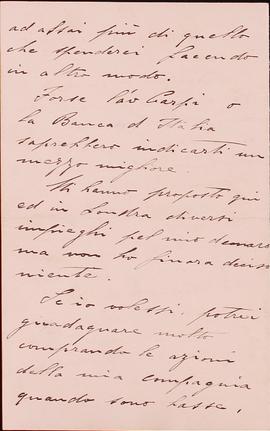 ad assai più di quello
che spenderei facendo
in altro modo.
Forse l'avv Carpi o
la Banca d'Italia
saprebbero indicarti un
mezzo migliore.
Mi hanno proposto qui
ed in Londra diversi
impieghi pel mio denaro
ma non ho finora deciso
niente.
Se io volessi, potrei
guadagnare molto
comprando le azioni
della mia compagnia
quando sono basse,